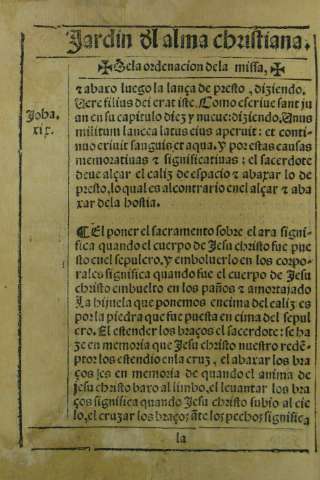 Jardin dl alma christiana.
✠ De la ordenacion dela missa, ✠
⁊ abaxo luego la lança de presto, diziendo.
Vere filius dei erat iste. Como escriue sant ju
an en su capitulo diez y nueue: diziendo. Unus
militum lancea latus eius aperuit: et conti-
nuo exiuit sanguis et aqua. y por estas causas
memoratiuas ⁊ significatiuas: el sacerdote
deue alçar el caliz de espacio ⁊ abaxar lo de
presto, lo qual es al contrario en el alçar ⁊ aba
xar dela hostia.
Joha.
xix.
¶ El poner el sacramento sobre el ara signi-
fica quando el cuerpo de Jesu christo fue pue
sto en el sepulcro, y emboluerlo en los corpo-
rales significa quando fue el cuerpo de Jesu
christo embuelto en los paños ⁊ amortajado
La hijuela que ponemos encima del caliz es
por la piedra que fue puesta en cima del sepul
cro. El estender los braços el sacerdote: se ha
ze en memoria que Jesu christo nuestro redẽ-
ptor los estendio en la cruz, el abaxar los bra
ços es en memoria de quando el anima de
jesu christo baxo al limbo, el leuantar los bra
ços significa quando Jesu christo subio al cie
lo, el cruzar los braços ãte los pechos significa
la